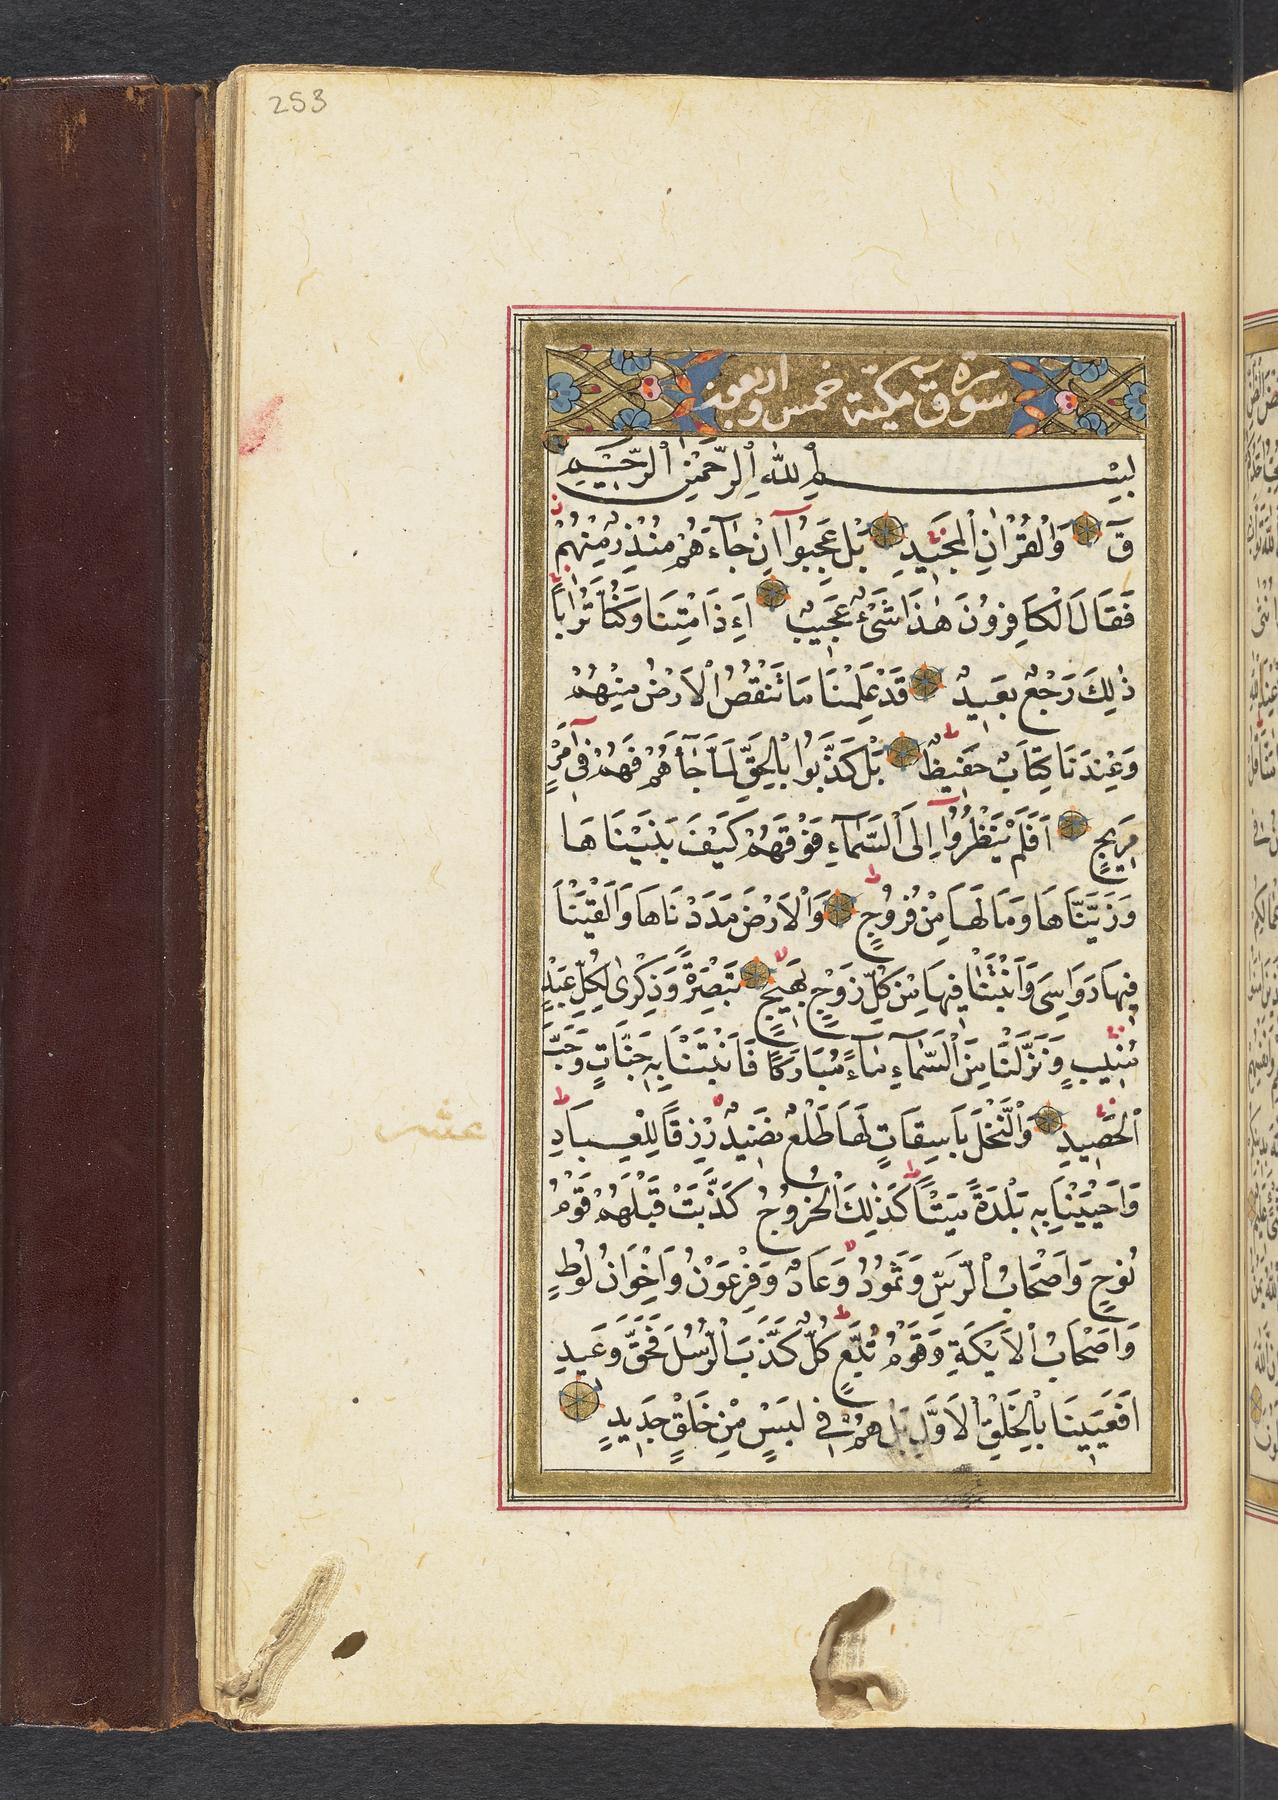 253
سورة ق مكية خمس واربعون
بِسْمِ اللّٰهِ الرَّحْمٰنِ الرَّحِيمِ
قٓ وَالْقُرْاٰنِ الْمَجِيدِ بَلْ عَجِبُوٓا اَنْ جَٓاءَهُمْ مُنْذِرٌ مِنْهُمْ
فَقَالَ الْكَافِرُونَ هٰذَا شَىْءٌ عَجِيبٌ اَءِذَا مِتْنَا وَكُنَّا تُرَابًا
ذٰلِكَ رَجْعٌ بَعِيدٌ قَدْ عَلِمْنَا مَا تَنْقُصُ الْاَرْضُ مِنْهُمْ
وَعِنْدَنَا كِتَابٌ حَفِيظٌ بَلْ كَذَّبُوا بِالْحَقِّ لَمَّا جَٓاءَهُمْ فَهُمْ فِٓى اَمْرٍ
مَرِيجٍ اَفَلَمْ يَنْظُرُوٓا اِلَى السَّمَٓاءِ فَوْقَهُمْ كَيْفَ بَنَيْنَاهَا
وَزَيَّنَّاهَا وَمَا لَهَا مِنْ فُرُوجٍ وَالْاَرْضَ مَدَدْنَاهَا وَاَلْقَيْنَا
فِيهَا رَوَاسِىَ وَاَنْبَتْنَا فِيهَا مِنْ كُلِّ زَوْجٍ بَهِيجٍ تَبْصِرَةً وَذِكْرٰى لِكُلِّ عَبْدٍ
مُنِيبٍ وَنَزَّلْنَا مِنَ السَّمَٓاءِ مَٓاءً مُبَارَكًا فَاَنْبَتْنَا بِهِ جَنَّاتٍ وَحَبَّ
الْحَصِيدِ وَالنَّخْلَ بَاسِقَاتٍ لَهَا طَلْعٌ نَضِيدٌ رِزْقًا لِلْعِبَادِ
وَاَحْيَيْنَا بِهِ بَلْدَةً مَيْتًا كَذٰلِكَ الْخُرُوجُ كَذَّبَتْ قَبْلَهُمْ قَوْمُ
نُوحٍ وَاَصْحَابُ الرَّسِّ وَثَمُودُ وَعَادٌ وَفِرْعَوْنُ وَاِخْوَانُ لُوطٍ
وَاَصْحَابُ الْاَيْكَةِ وَقَوْمُ تُبَّعٍ كُلٌّ كَذَّبَ الرُّسُلَ فَحَقَّ وَعِيدِ
اَفَعَيِينَا بِالْخَلْقِ الْاَوَّلِ بَلْ هُمْ فِى لَبْسٍ مِنْ خَلْقٍ جَدِيدٍ